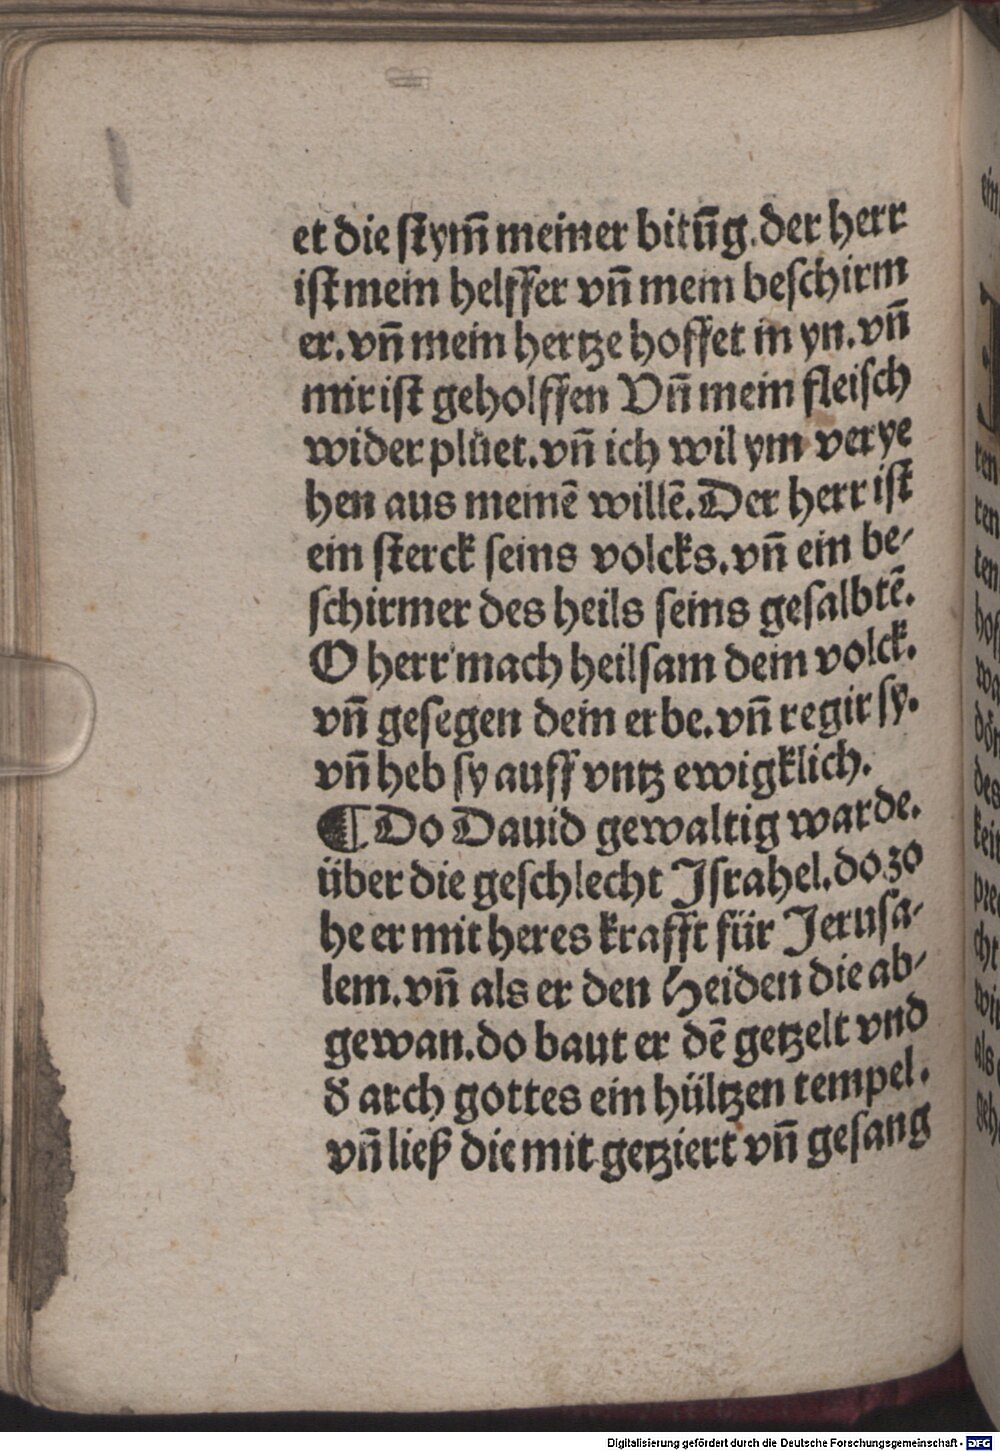 et die ſtym̃ meiner bitũg. der herr
iſt mein helffer vñ mein beſchirm
er. vñ mein hertze hoffet in yn. vñ
mir iſt geholffen Vñ mein fleiſch
wider plüet. vñ ich wil ym verye
hen aus meinē willē. Der herr iſt
ein ſterck ſeins volcks. vñ ein be⸗
ſchirmer des heils ſeins geſalbtē.
O herr mach heilſam dem volck.
vñ geſegen dein erbe. vñ regir ſy.
vñ heb ſy auff vntz ewigklich.
¶ Do Dauid gewaltig warde.
über die geſchlecht Iſrahel. do zo
he er mit heres krafft für Jeruſa⸗
lem. vñ als er den Heiden die ab⸗
gewan. do baut er dē getzelt vnd
đ arch gottes ein hültzen tempel.
vñ ließ die mit getziert vñ geſang
Digitalisierung gefördert durch die Deutsche Forschungsgemeinschaft - DFG